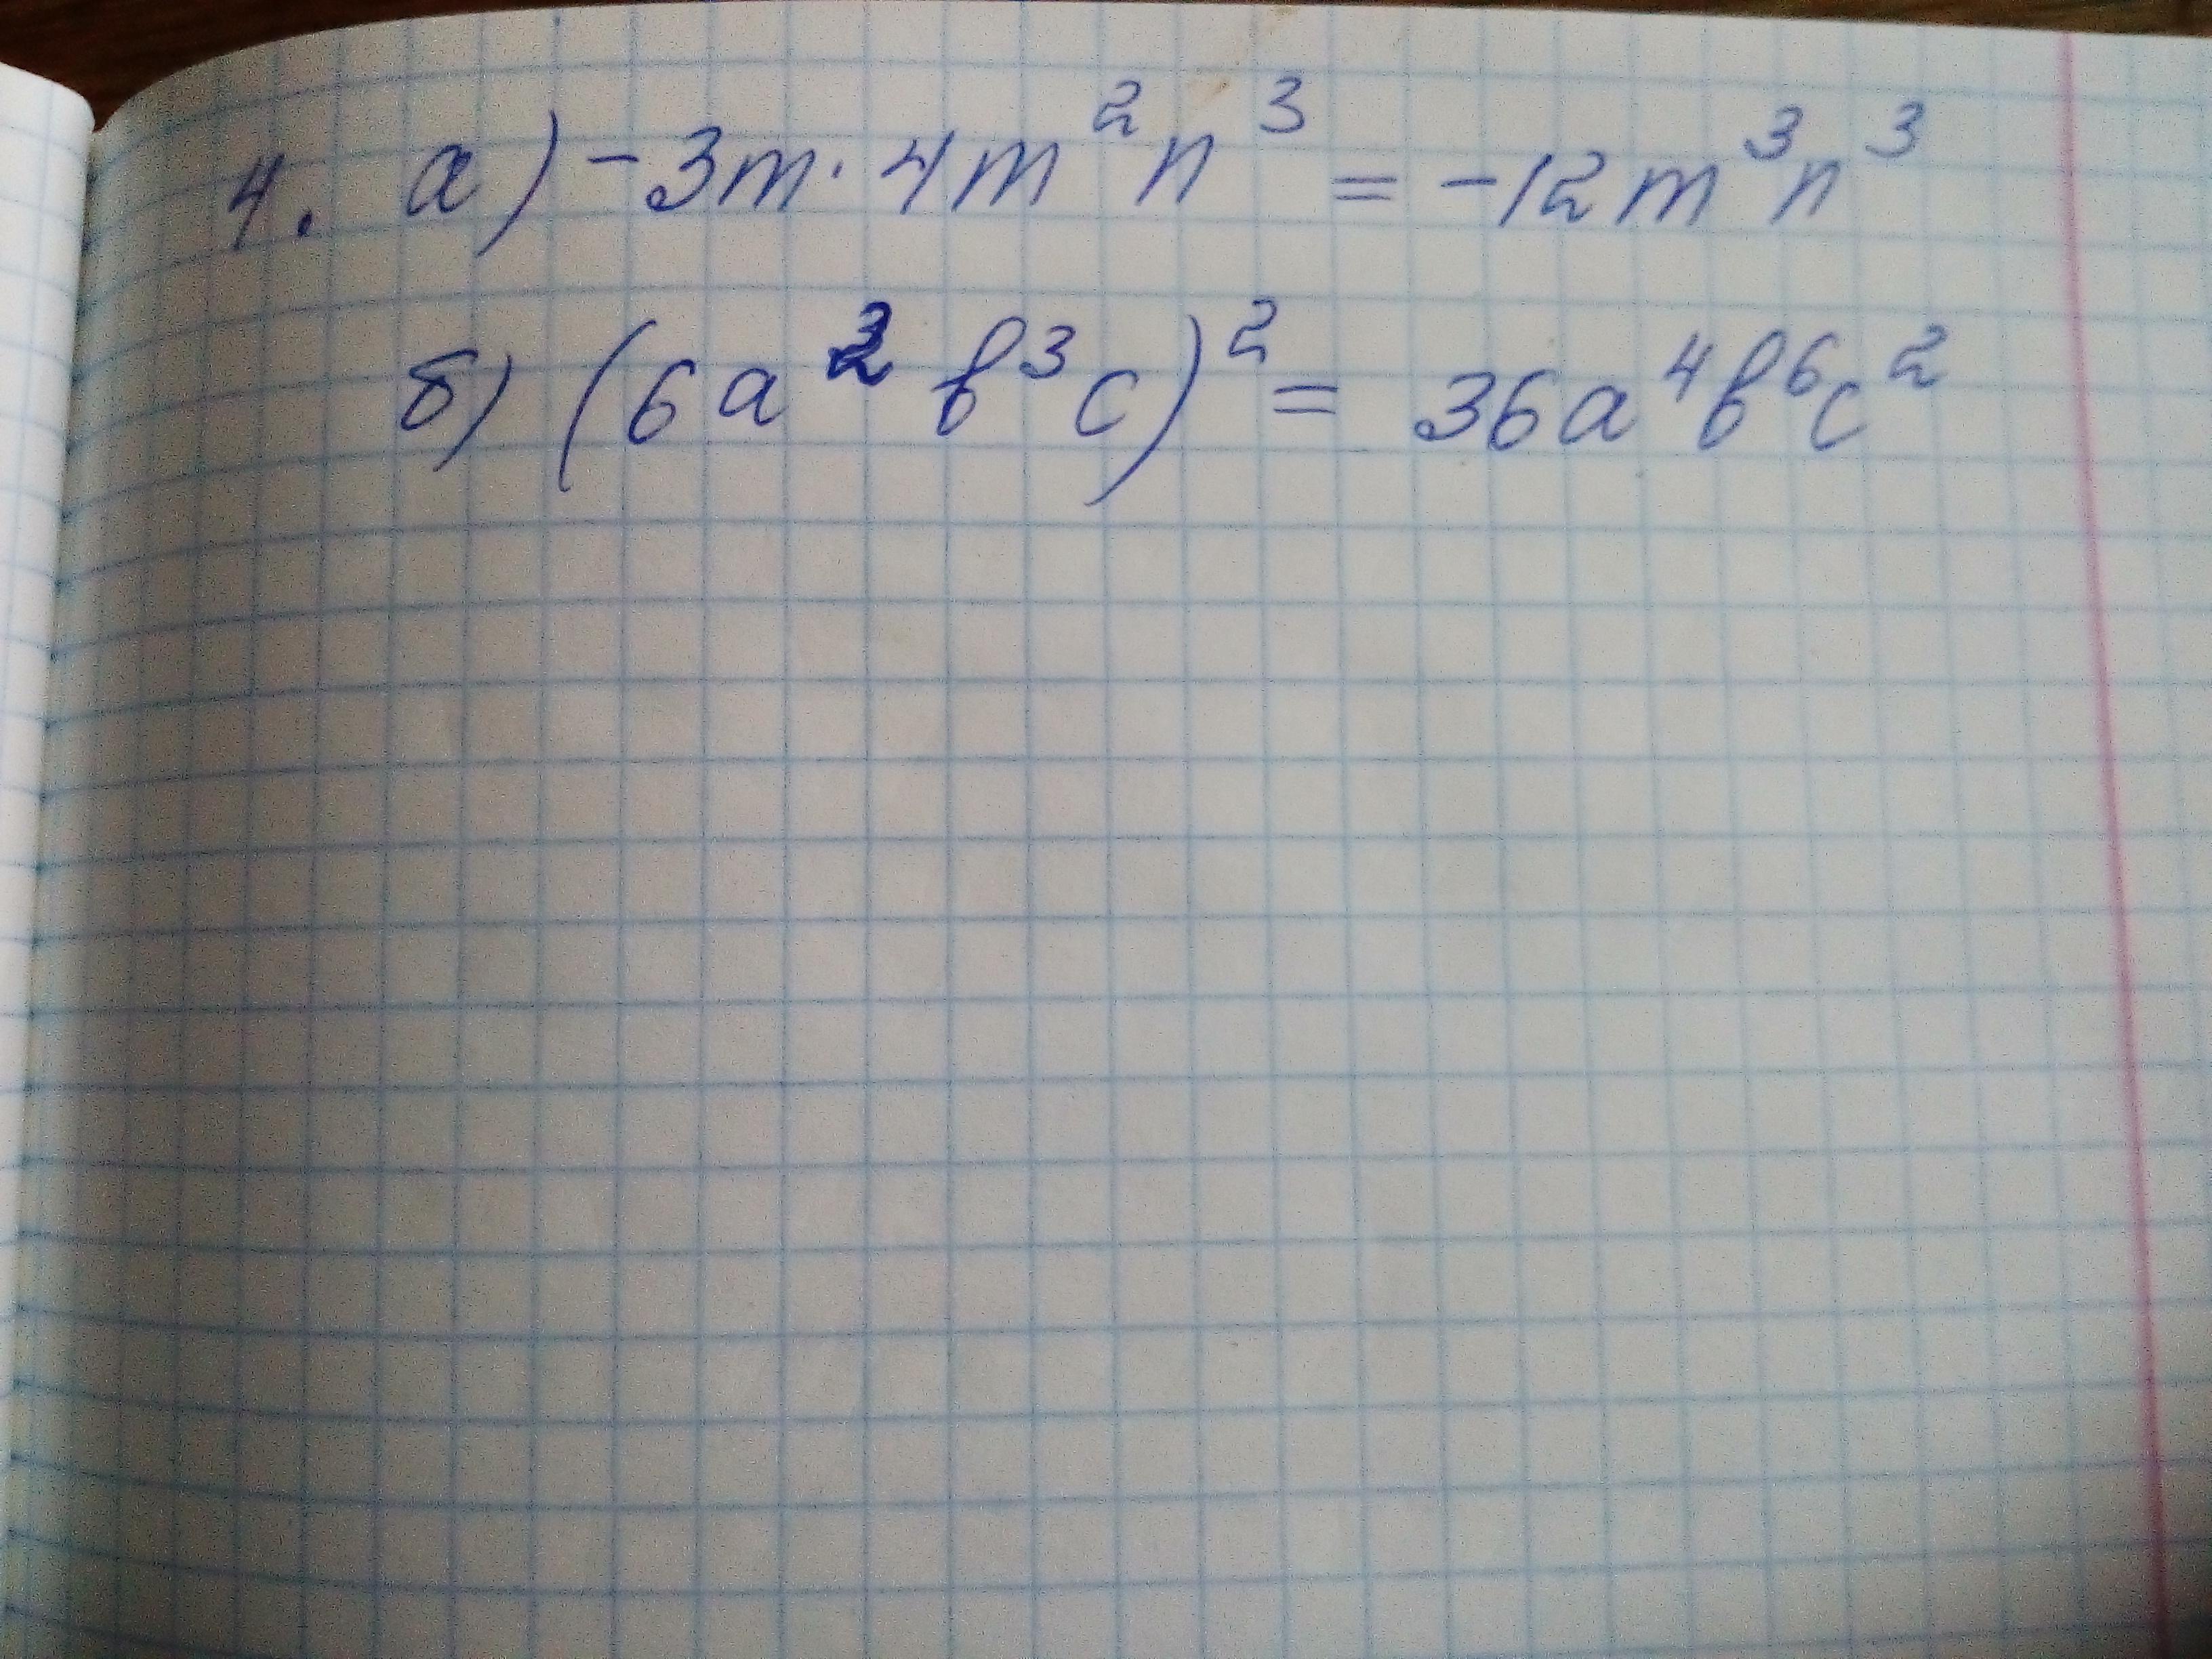 4. а) -3m · 4m²n³ = -12m³n³
б) (6a²b³c)² = 36a⁴b⁶c²